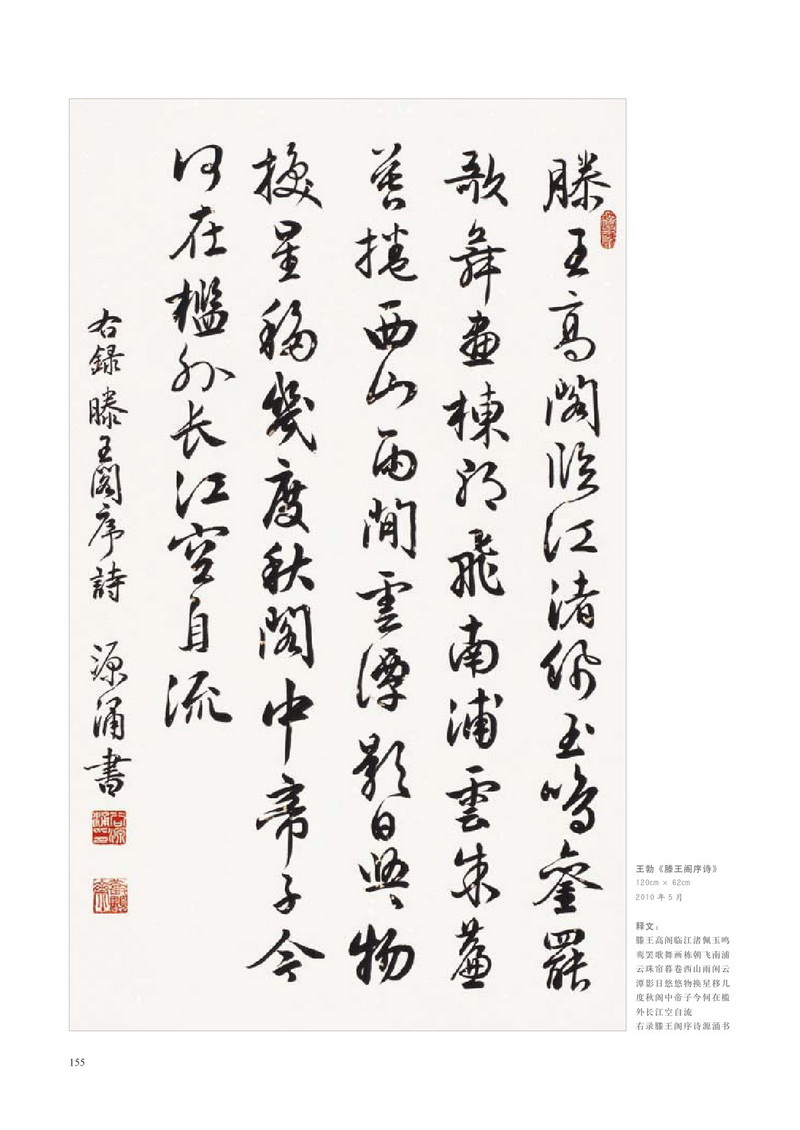 滕王高閣臨江渚佩玉鳴鑾罷
歌舞畫棟朝飛南浦雲朱簾
暮捲西山雨閒雲潭影日悠〻物
換星移幾度秋閣中帝子今
何在檻外长江空自流
右録滕王閣序詩 源涌書
王勃《滕王阁序诗》
120cm × 62cm
2010 年 5 月
释文：
滕王高阁临江渚佩玉鸣
鸾罢歌舞画栋朝飞南浦
云珠帘暮卷西山雨闲云
潭影日悠悠物换星移几
度秋阁中帝子今何在槛
外长江空自流
右录滕王阁序诗源涌书
155